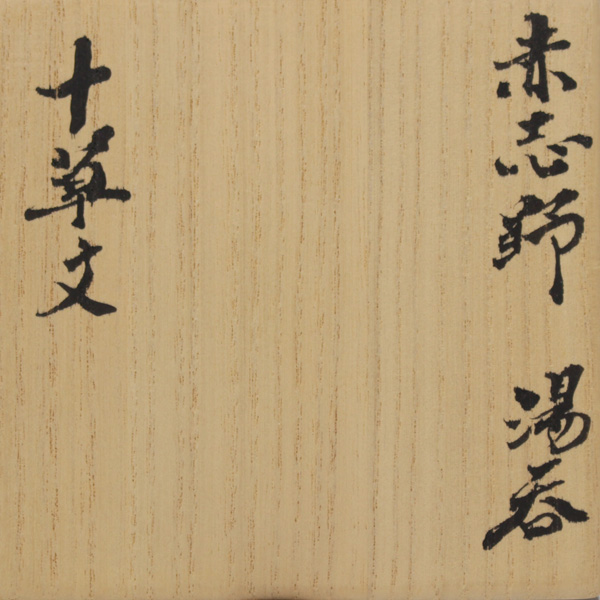 赤志野 湯呑
十草文